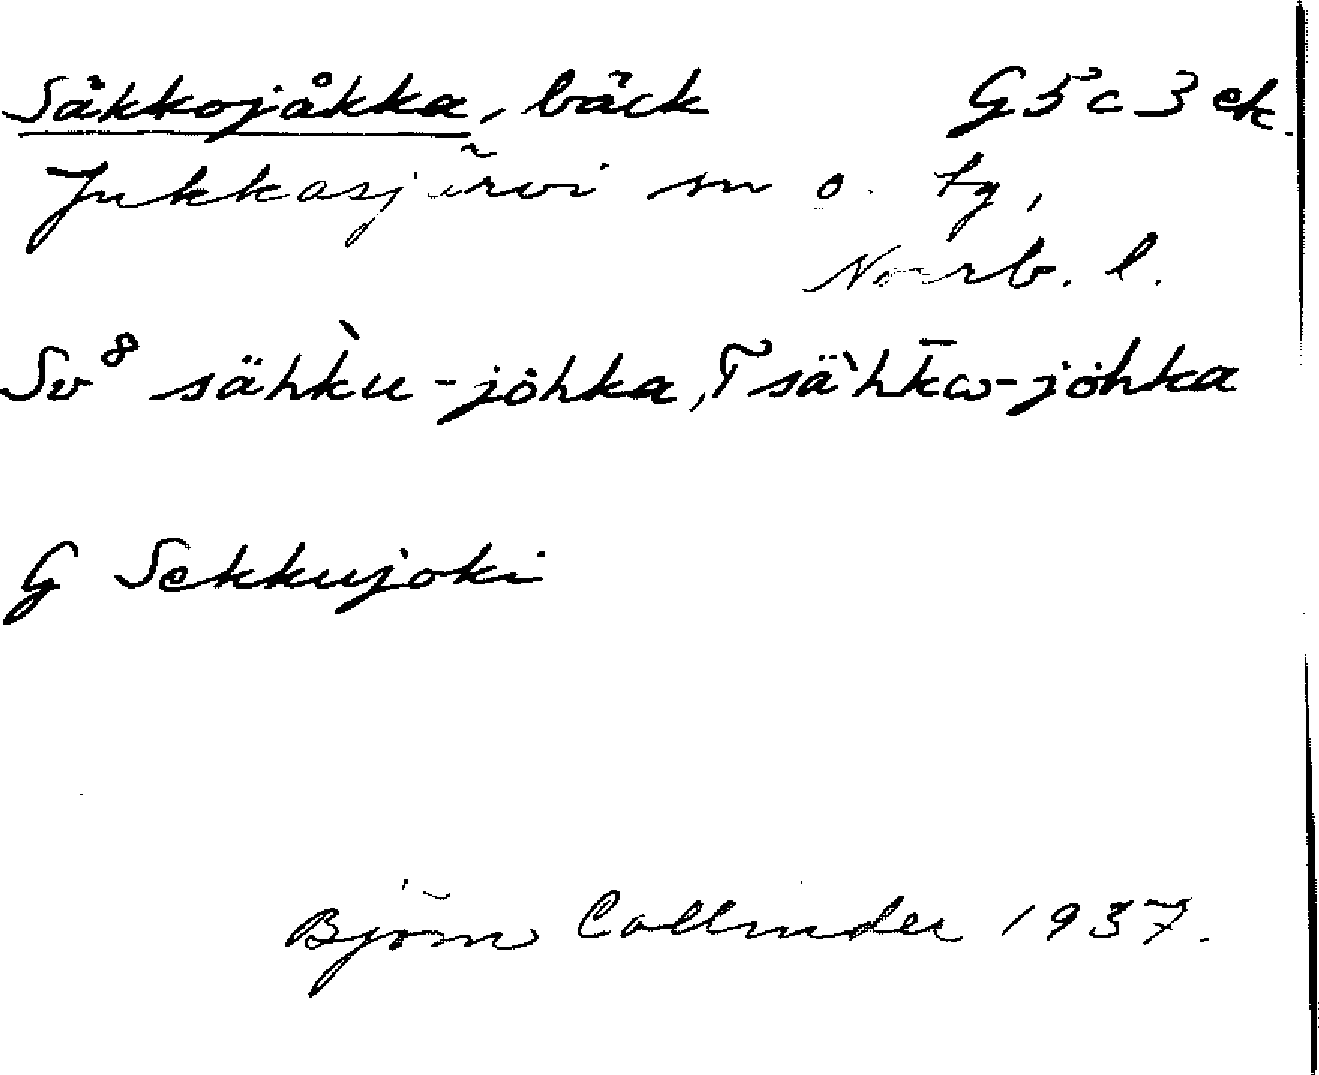 Såkkojåkka, bäck G5c3ek.
Jukkasjärvi sn o. tg,
Norrb. l.
Sv⁸ sähkù-jöhka, T sä`hk̄ω-jöhka
G Sekkujoki
Björn Collinder 1937.